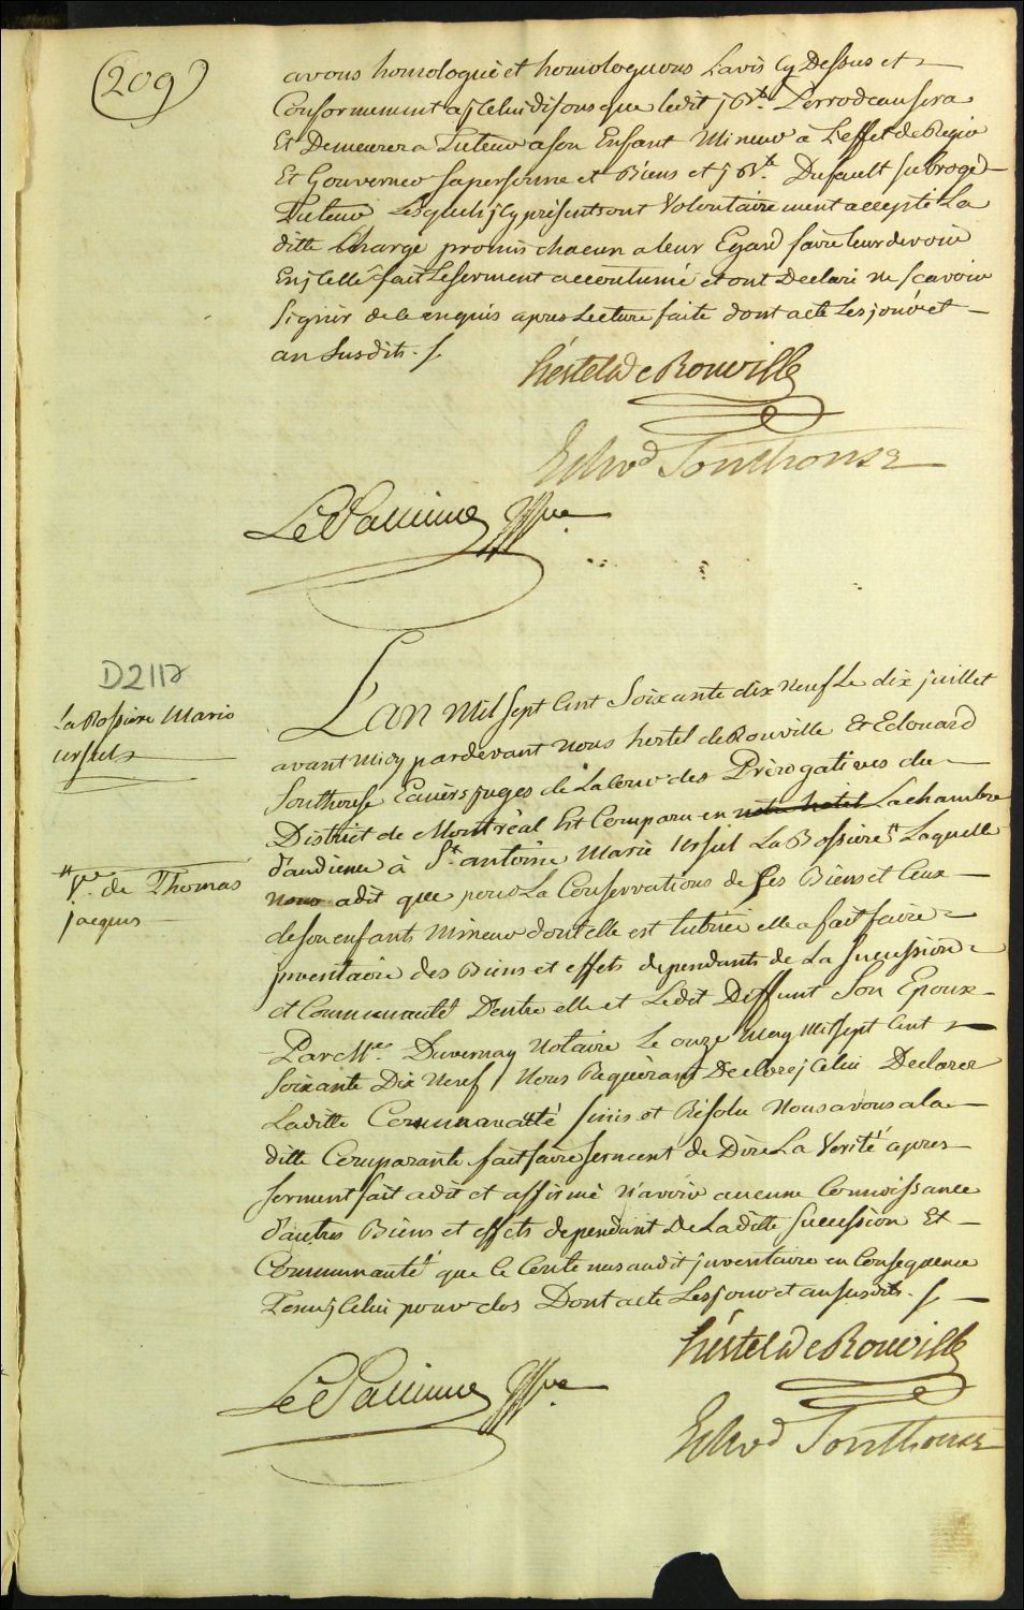 (209)
avons homologué et homologuons Lavis Cy Dessus et
Conformement a jCelui disons que ledit j Bte. Perrodeau sera
Et Demeurera Tuteur a son Enfant Mineur à L'effet de Regir
Et Gouverner sa personne et Biens et j Bte. Dufault subrogé
Tuteur Lesquels jCy présents ont Volontairement accepté La
ditte Charge promis chacun a leur Egard faire leur devoir
En jCelle fait Le serment accoutumé et ont Declaré ne sçavoir
signer de ce enquis apres Lecture faite dont acte Les jour et
an susdits ./.
hertel de Rouville
Edwd Southouse
LePallieur Gffier
D2117
La Bossiere Marie
ursul
L'an Mil sept Cent Soixante dix neuf Le dix juillet
avant Midy pardevant Nous hertel de Rouville Et Edouard
Southouse Ecuiers juges de La Cour des Prérogatives du
District de Montréal Est Comparu en notre hotel La chambre
d'audience à St. antoine Marie Ursul La Bossiere " Laquelle
" Ve. de Thomas
jacques
nous a dit que pour La Conservations de ses Biens et Ceux
de son enfants Mineur dont elle est tutrice elle a fait faire
jnventaire des Biens et effets dependants de La sucession
et Communauté D'entre elle et Ledit Deffunt Son Epoux
Par Me. Duvernay Notaire Le onze May Mil sept Cent
soixante Dix Neuf / Nous Requèrant De clore jCelui Declarer
La ditte Communauté finis et Résolu Nous avons a la
ditte Comparante fait faire serment de Dire La Verité apres
serment fait a dit et affirmé n'avoir aucune Connoissance
d'autres Biens et effets dependant De La ditte sucession Et
Communauté que Ce Contenus audit jnventaire en Consequence
Tenu jCelui pour clos Dont acte Les jour et an susdits ./.
hertel de Rouville
LePallieur Gffier
Edwd Southouse